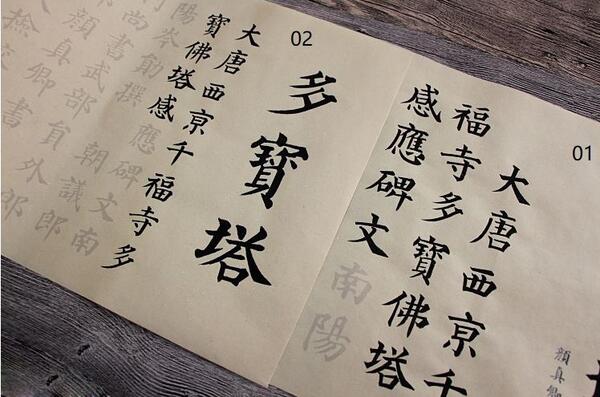 01
顏真卿
大唐西京千
福寺多寶佛塔
感應碑文南陽
02
多寶塔
大唐西京千福寺多
寶佛塔感應碑文南
陽岑勛撰朝議郎
尚書武部員外郎
顏真卿書